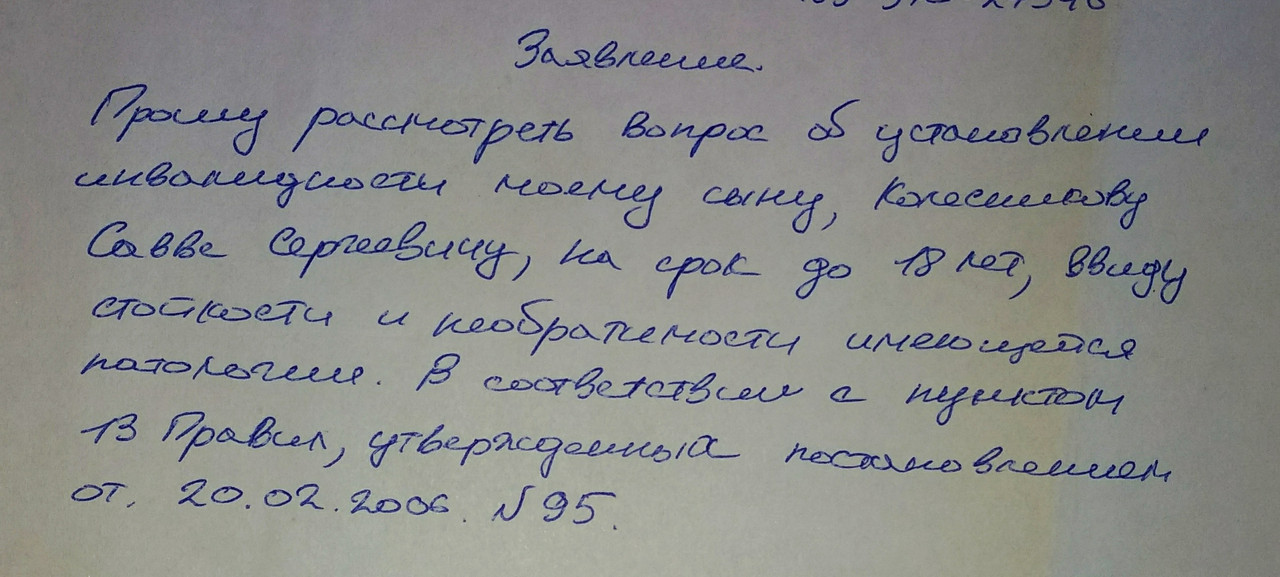 Заявление.
Прошу рассмотреть вопрос об установлении
инвалидности моему сыну, Колесникову
Савве Сергеевичу, на срок до 18 лет, ввиду
стойкости и необратимости имеющейся
патологии. В соответствии с пунктом
13 Правил, утвержденных постановлением
от. 20.02.2006. №95.